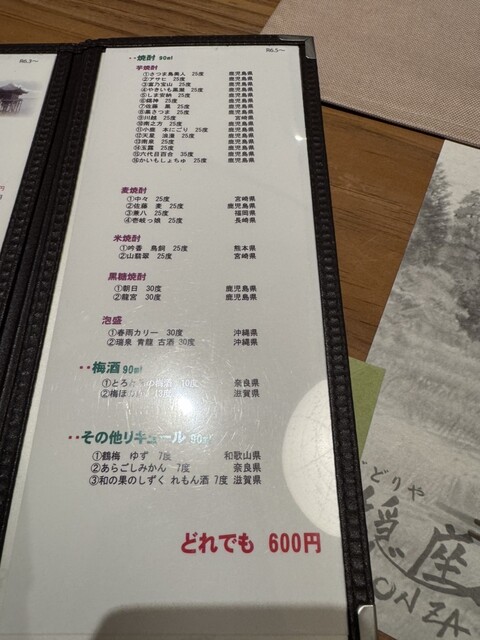 R6.3～
R6.5～
・・焼酎 90ml
芋焼酎
①さつま島美人 25度 鹿児島県
②アサヒ 25度 鹿児島県
③富乃宝山 25度 鹿児島県
④やきいも黒瀬 25度 鹿児島県
⑤しま安納 25度 鹿児島県
⑥蟠神 25度 鹿児島県
⑦佐藤 黒 25度 鹿児島県
⑧黒さつま 25度 鹿児島県
⑨川越 25度 宮崎県
⑩南之方 25度 鹿児島県
⑪小鹿 本にごり 25度 鹿児島県
⑫天星 浪漫 25度 鹿児島県
⑬南泉 25度 鹿児島県
⑭玉露 25度 鹿児島県
⑮六代目百合 35度 鹿児島県
⑯かいもしょちゅ 25度 鹿児島県
麦焼酎
①中々 25度 宮崎県
②佐藤 麦 25度 鹿児島県
③兼八 25度 福岡県
④壱岐っ娘 25度 長崎県
米焼酎
①吟香 鳥飼 25度 熊本県
②山翡翠 25度 宮崎県
黒糖焼酎
①朝日 30度 鹿児島県
②龍宮 30度 鹿児島県
泡盛
①春雨カリー 30度 沖縄県
②瑞泉 青龍 古酒 30度 沖縄県
・・梅酒 90ml
①とろ 梅酒 10度 奈良県
②梅ほ 滋賀県
・・その他リキュール 90ml
①鶴梅 ゆず 7度 和歌山県
②あらごしみかん 7度 奈良県
③和の果のしずく れもん酒 7度 滋賀県
どれでも 600円
円
どりや
隠座
ONZA